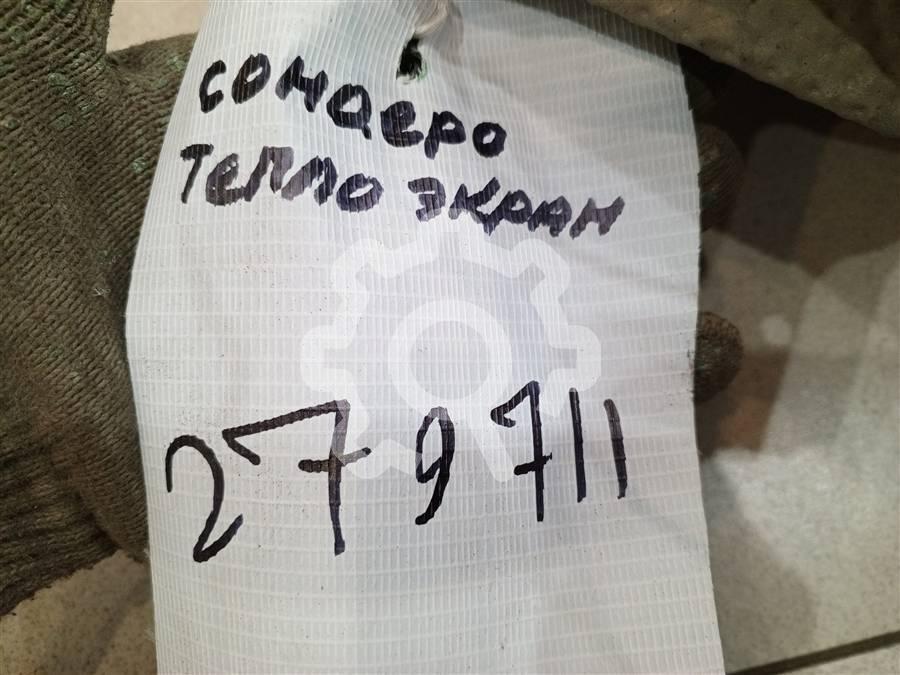 сондеро
тепло экран
279711